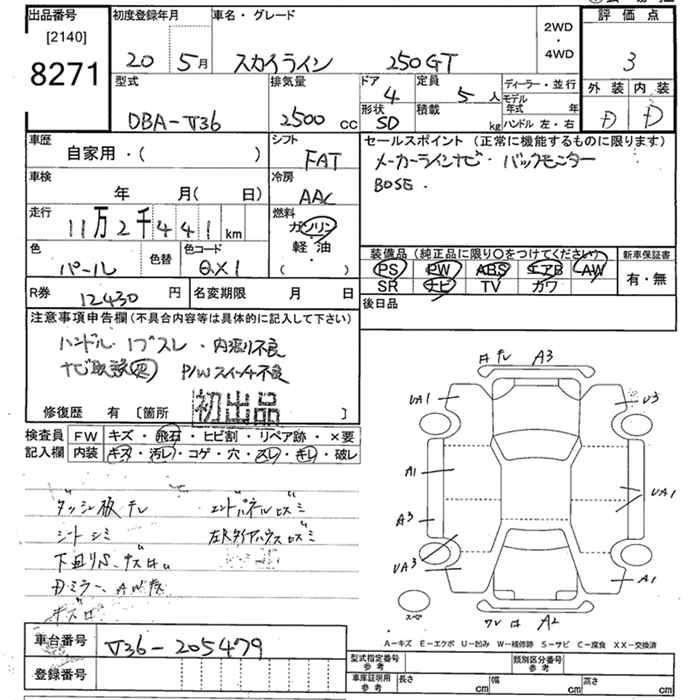 出品番号
[2140]
8271
初度登録年月
20 5月
車名・グレード
スカイライン 250GT
2WD
・
4WD
評価点
3
外装 内装
D D
型式
DBA-V36
排気量
2500cc
ドア
4
形状
SD
定員
5人
積載
kg
ディーラー・並行
モデル年式 年
ハンドル 左・右
車歴
自家用・( )
シフト
FAT
セールスポイント (正常に機能するものに限ります)
メーカーラインナビ・バックモニター
BOSE.
車検
年 月( 日)
冷房
AAC
走行
11万2千441km
燃料
ガソリン
軽油
( ・ )
色
パール
色替
色コード
QX1
装備品(純正品に限り○をつけてください)
PS PW ABS エアB AW
SR ナビ TV カワ
新車保証書
有・無
R券 12430円
名変期限 月 日
後日品
注意事項申告欄(不具合内容等は具体的に記入して下さい)
ハンドル、リブスレ・内張り不良
ナビ取説
P/Wスイッチ不良
初出品
修復歴 有 [箇所 ]
検査員 FW キズ・飛石・ヒビ割・リペア跡・×要
記入欄 内装 キズ・汚レ・コゲ・穴・スレ・キレ・破レ
ダッシュ板 エンドパネルヒズミ
シートシミ 左Rタイヤハウスヒズミ
下回りS、
Dミラー、AW
キズ
A3
UA1
U3
A1
A3
UA1
UA3
A1
スペア
A2
A-キズ E-エクボ U-凹み W-補修跡 S-サビ C-腐食 XX-交換済
車台番号 V36-205479
登録番号
型式指定番号
参考
類別区分番号
参考
車庫証明用
参考
長さ cm
幅 cm
高さ cm